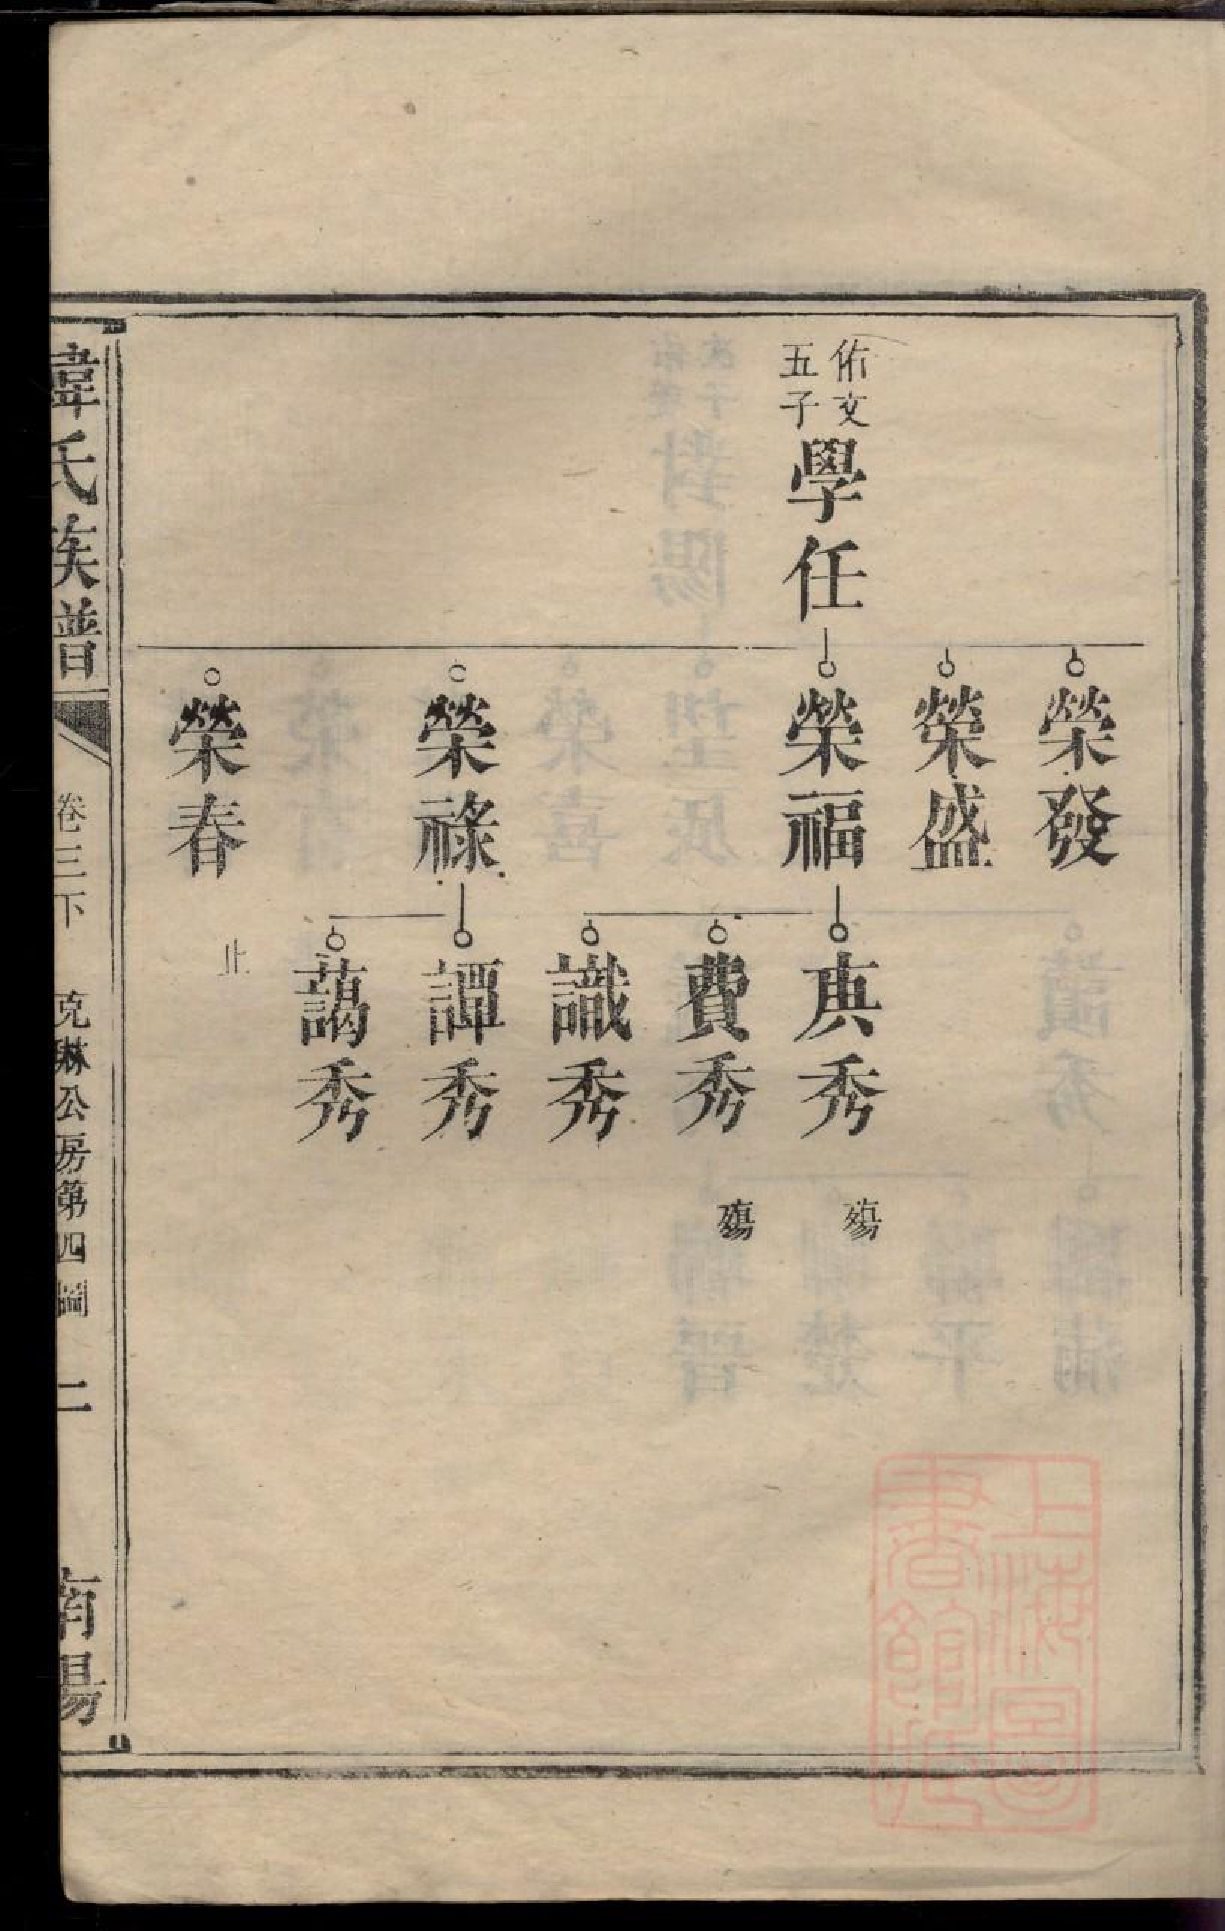 佑文
五子
學任
榮發
榮盛
榮福
榮祿
榮春
止
典秀
殤
費秀
殤
識秀
譚秀
藹秀
韋氏族譜
卷三下
克琳公房第四圖
二
南陽
上海圖
書館藏